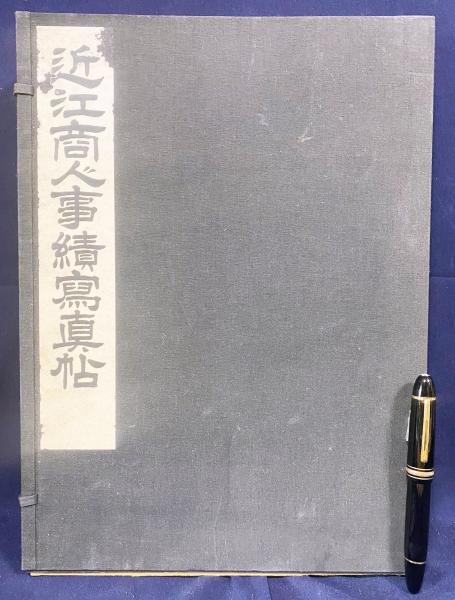 近江商人事績寫真帖